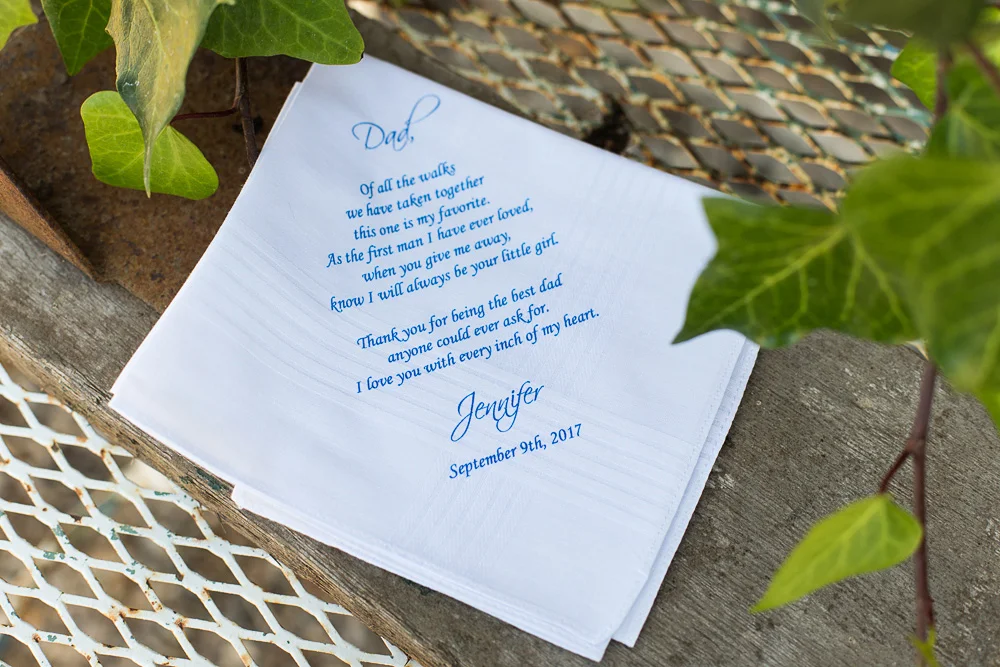 Dad,
Of all the walks
we have taken together
this one is my favorite.
As the first man I have ever loved,
when you give me away,
know I will always be your little girl.
Thank you for being the best dad
anyone could ever ask for.
I love you with every inch of my heart.
Jennifer
September 9th, 2017